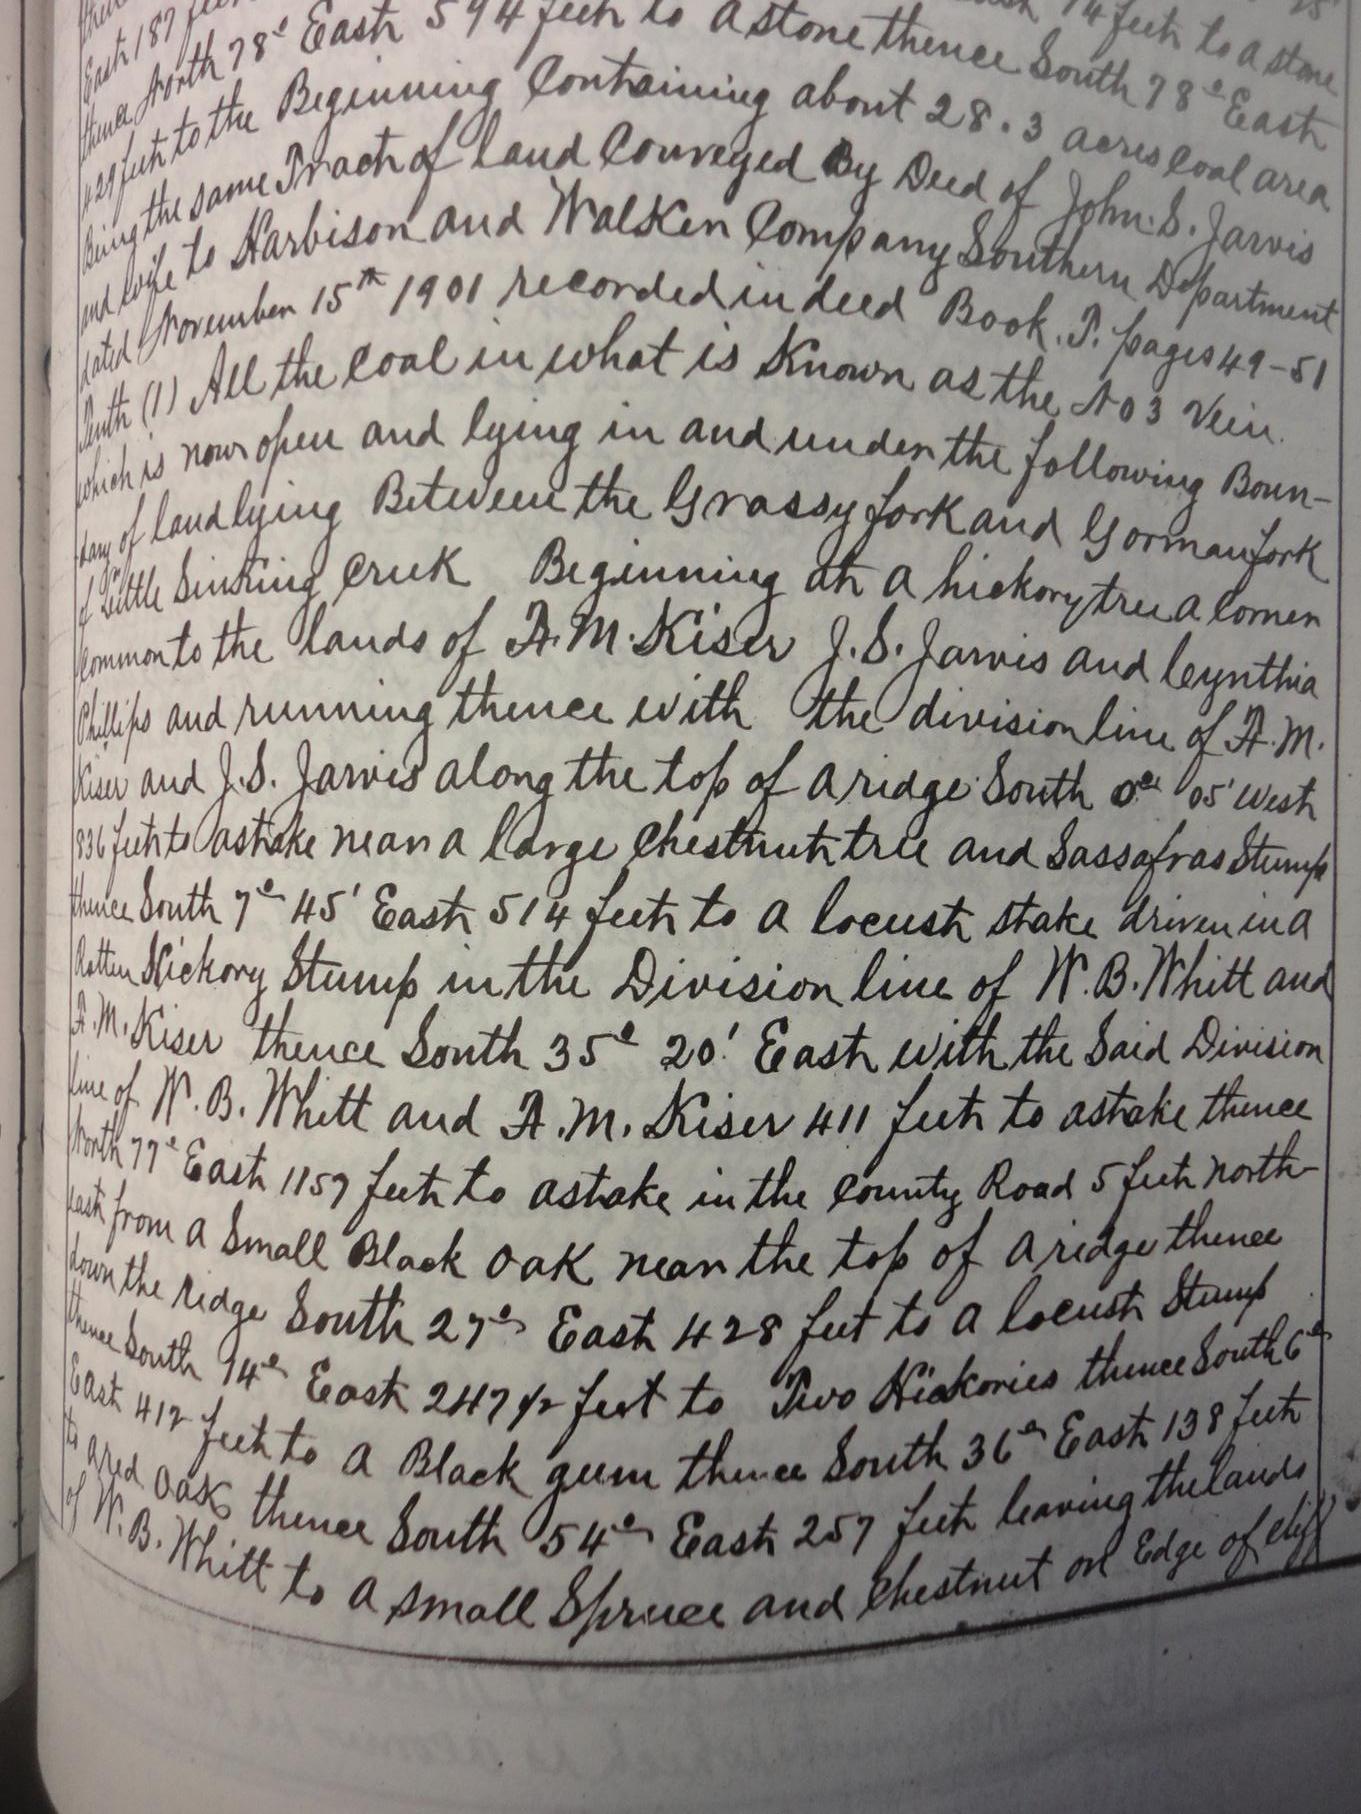 East 187 feet 14 feet to a stone
thence North 78° East 594 feet to a stone thence South 78° East
429 feet to the Beginning Containing about 28.3 acres coal area
Being the same Tract of land Conveyed By Deed of John. S. Jarvis
and wife to Harbison and Walken Company Southern Department
dated November 15th 1901 recorded in deed Book. T. pages 49-51
Tenth (1) All the Coal in what is Known as the No 3 Vein.
which is now open and lying in and under the following Boun-
dary of land lying Between the Grassy fork and Gorman fork
of Little Sinking Creek Beginning at a hickory tree a Corner
Common to the lands of A. M. Kiser J. S. Jarvis and Cynthia
Phillips and running thence with the division line of A. M.
Kiser and J. S. Jarvis along the top of a ridge South 0° 05' West
836 feet to a stake near a large Chestnut tree and Sassafras Stump
thence South 7° 45' East 514 feet to a locust stake driven in a
Rotten Hickory Stump in the Division line of W. B. Whitt and
A. M. Kiser thence South 35° 20' East with the Said Division
line of W. B. Whitt and A. M. Kiser 411 feet to a stake thence
North 77° East 1157 feet to a stake in the County Road 5 feet north-
east from a Small Black Oak near the top of a ridge thence
down the ridge South 27° East 428 feet to a locust Stump
thence South 14° East 247 1/2 feet to Two Hickories thence South 6°
East 412 feet to a Black gum thence South 36° East 138 feet
to a red Oak thence South 54° East 257 feet leaving the lands
of W. B. Whitt to a small Spruce and Chestnut on Edge of Cliff